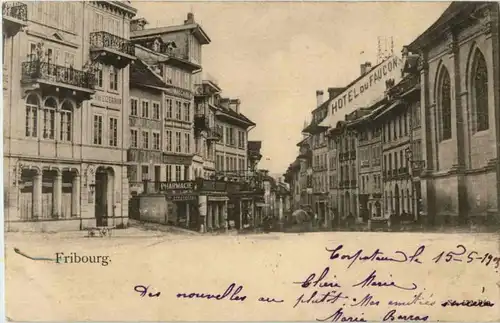 HOTEL DU FAUCON
PHARMACIE
Fribourg.
Corpataux le 15-5-190
Chère Marie
Des nouvelles au plutôt. Mes amitiés
Marie Barras